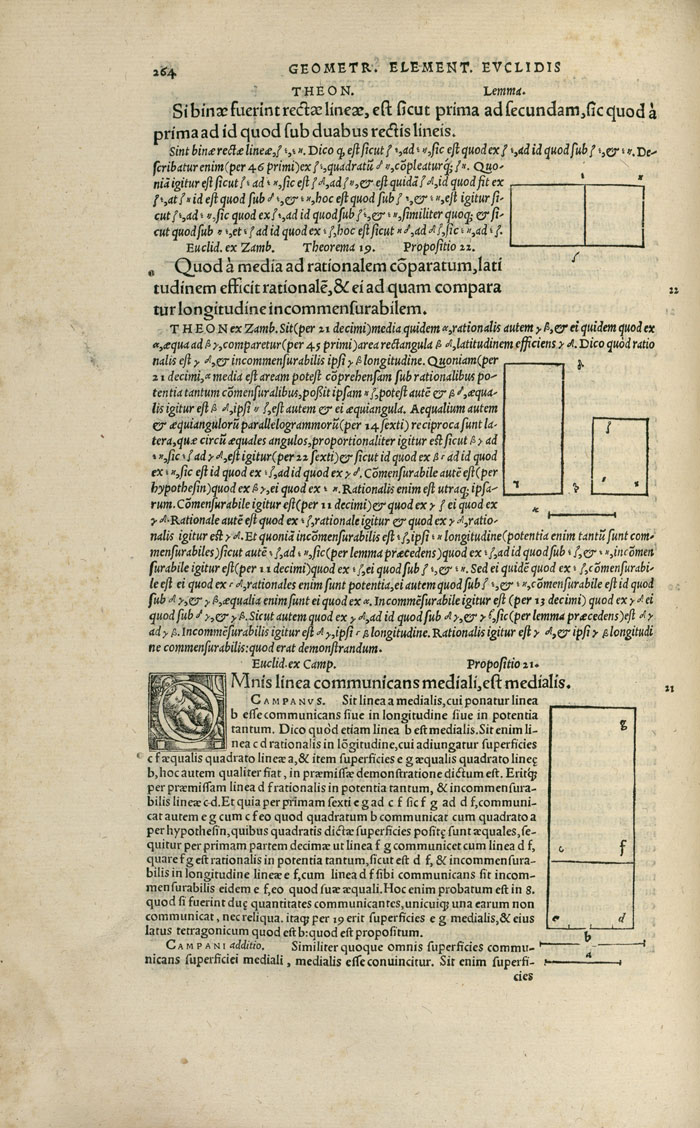 264 GEOMETR. ELEMENT. EVCLIDIS
THEON. Lemma.
Si binæ fuerint rectæ lineæ, est sicut prima ad secundam, sic quod à
prima ad id quod sub duabus rectis lineis.
Sint binæ rectæ lineæ, ζε, εη. Dico q, est sicut ζε, ad εη, sic est quod ex ζε, ad id quod sub ζε, & εη. De-
scribatur enim (per 46 primi) ex ζε, quadratũ δη, cõpleaturq; ζη. Quo-
niã igitur est sicut ζε ad εη, sic est ζδ, ad ζη, & est quidã ζδ, id quod fit ex
ζε, at ζη id est quod sub δε, & εη, hoc est quod sub ζε, & εη, est igitur si-
cut ζε, ad εη, sic quod ex ζε, ad id quod sub ζε, & εη, similiter quoq; & si-
cut quod sub ηε, et εζ ad id quod ex εζ, hoc est sicut ηδ, ad δζ, sic ηε, ad εζ.
Euclid. ex Zamb. Theorema 19. Propositio 22.
Quod à media ad rationalem cõparatum, lati
tudinem efficit rationalẽ, & ei ad quam compara
22
tur longitudine incommensurabilem.
THEON ex Zamb. Sit (per 21 decimi) media quidem α, rationalis autem γβ, & ei quidem quod ex
α, æqua ad βγ, comparetur (per 45 primi) area rectangula βδ, latitudinem efficiens γδ. Dico quòd ratio
nalis est γδ, & incommensurabilis ipsi γβ longitudine. Quoniam (per
21 decimi, α media est aream potest cõprehensam sub rationalibus po-
tentia tantum cõmensuralibus, possit ipsam ηζ, potest autẽ & βδ, æqua-
lis igitur est βδ, ipsi ηζ, est autem & ei æquiangula. Aequalium autem
& æquiangulorũ parallelogrammorũ (per 14 sexti) reciproca sunt la-
tera, quæ circũ æquales angulos, proportionaliter igitur est sicut βγ ad
εη, sic εζ ad γδ, est igitur (per 22 sexti) & sicut id quod ex βγ ad id quod
ex εη, sic est id quod ex εζ, ad id quod ex γδ. Cõmensurabile autẽ est (per
hypothesin) quod ex βγ, ei quod ex εη. Rationalis enim est utraq; ipsa-
rum. Cõmensurabile igitur est (per 11 decimi) & quod ex εζ ei quod ex
γδ. Rationale autẽ est quod ex εζ, rationale igitur & quod ex γδ, ratio-
nalis igitur est γδ. Et quoniã incõmensurabilis est εζ, ipsi εη longitudine (potentia enim tantũ sunt com-
mensurabiles) sicut autẽ εζ, ad εη, sic (per lemma præcedens) quod ex εζ, ad id quod sub εζ, & εη, incõmen
surabile igitur est (per 11 decimi) quod ex εζ, ei quod sub ζε, εη. Sed ei quidẽ quod ex εζ, cõmensurabi-
le est ei quod ex γδ, rationales enim sunt potentia, ei autem quod sub ζε, & εη, cõmensurabile est id quod
sub δγ, & γβ, æqualia enim sunt ei quod ex α. Incommẽsurabile igitur est (per 13 decimi) quod ex γδ ei
quod sub δγ, & γβ. Sicut autem quod ex γδ, ad id quod sub δγ, & γβ, sic (per lemma præcedens) est δγ
ad γβ. Incommẽsurabilis igitur est δγ, ipsi γβ longitudine. Rationalis igitur est γδ, & ipsi γβ longitudi
ne commensurabilis: quod erat demonstrandum.
Euclid. ex Camp. Propositio 21.
OMnis linea communicans mediali, est medialis.
21
CAMPANVS. Sit linea a medialis, cui ponatur linea
b esse communicans siue in longitudine siue in potentia
tantum. Dico quòd etiam linea b est medialis. Sit enim li-
nea c d rationalis in lõgitudine, cui adiungatur superficies
c f æqualis quadrato lineæ a, & item superficies e g æqualis quadrato lineę
b, hoc autem qualiter fiat, in præmissæ demonstratione dictum est. Eritq́;
per præmissam linea d f rationalis in potentia tantum, & incommensura-
bilis lineæ c d. Et quia per primam sexti e g ad c f sic f g ad d f, communi-
cat autem e g cum c f eo quod quadratum b communicat cum quadrato a
per hypothesin, quibus quadratis dictæ superficies positę sunt æquales, se-
quitur per primam partem decimæ ut linea f g communicet cum linea d f,
quare f g est rationalis in potentia tantum, sicut est d f, & incommensura-
bilis in longitudine lineæ e f, cum linea d f sibi communicans sit incom-
mensurabilis eidem e f, eo quod suæ æquali. Hoc enim probatum est in 8.
quod si fuerint duę quantitates communicantes, unicuiq; una earum non
communicat, nec reliqua. itaq; per 19 erit superficies e g medialis, & eius
latus tetragonicum quod est b: quod est propositum.
CAMPANI additio. Similiter quoque omnis superficies commu-
nicans superficiei mediali, medialis esse conuincitur. Sit enim superfi-
cies
g
c f
e d
b
a